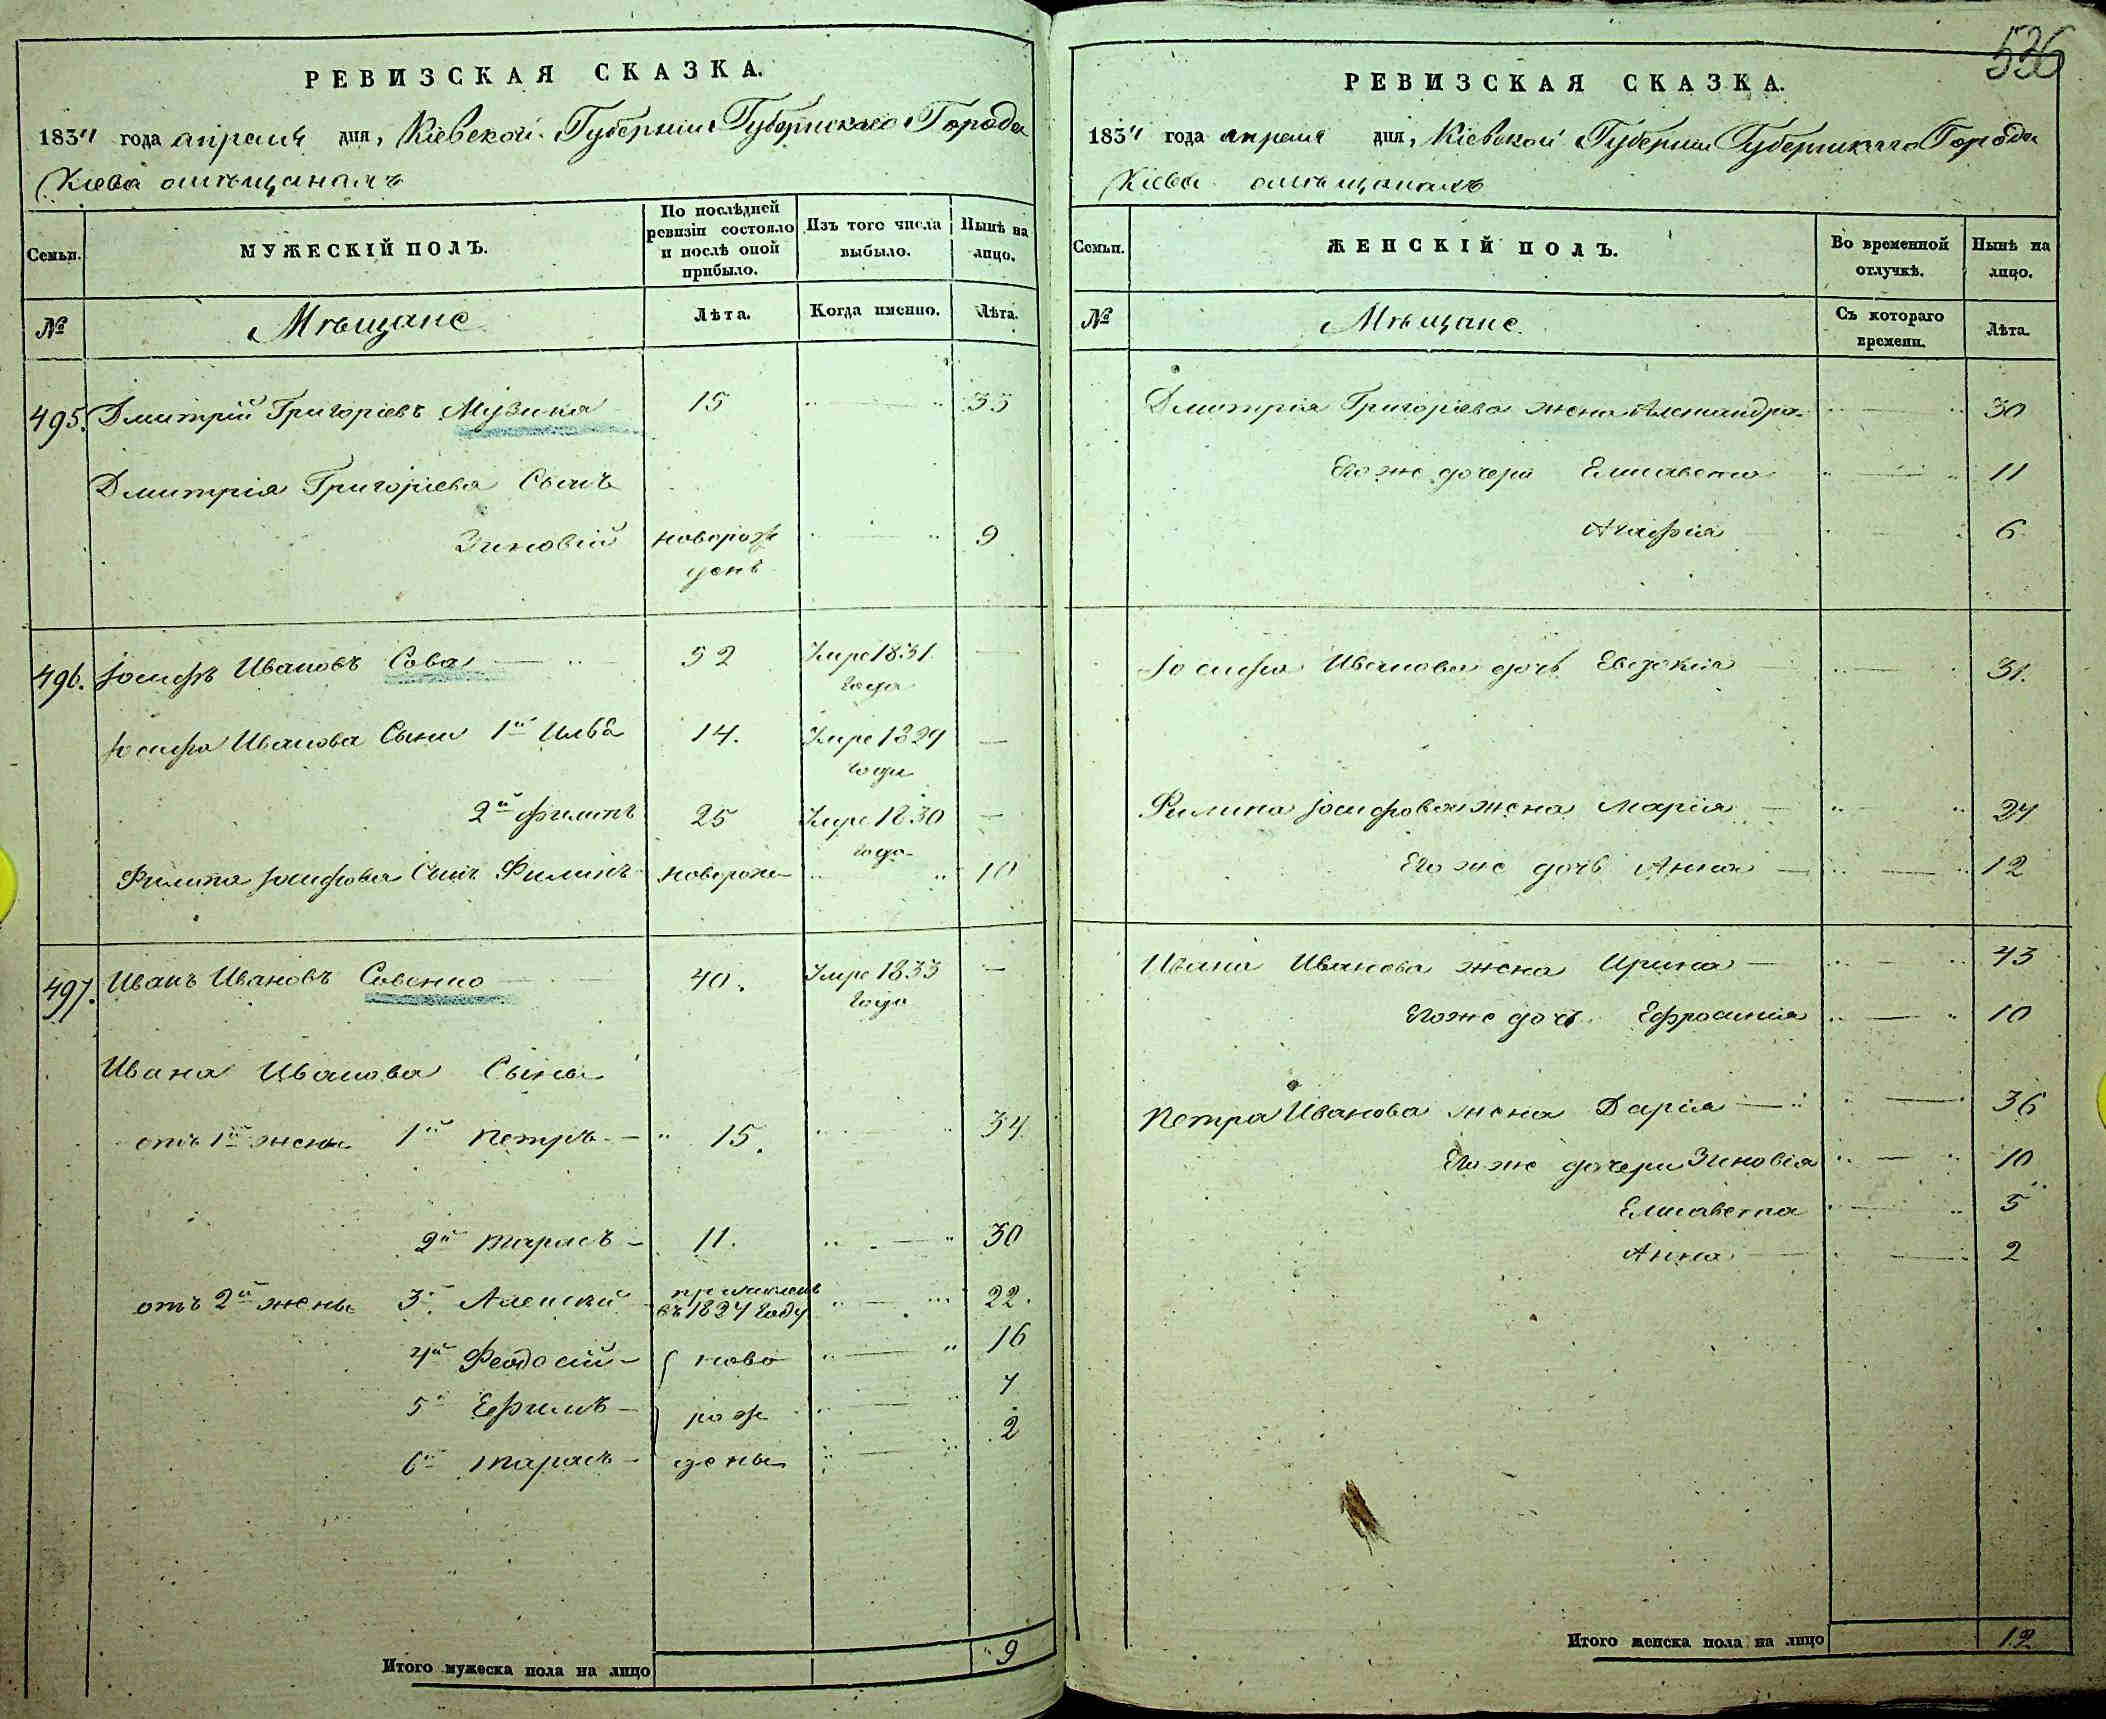 РЕВИЗСКАЯ СКАЗКА.
1834 года апреля дня, Кіевской Губерніи Губернскаго Города
Кіева омѣщанахъ
Семьи.
МУЖЕСКІЙ ПОЛЪ.
По послѣдней ревизіи состояло и послѣ оной прибыло.
Изъ того числа выбыло.
Нынѣ на лицо.
№
Мѣщане
Лѣта.
Когда именно.
Лѣта.
495. Дмитрій Григоріевъ Музика 15 " — " 35
Дмитрія Григоріева Сынъ
Зиновій новорож " — " 9
денъ
496. Іосифъ Ивановъ Сова — " — 52 Умре 1831 —
года
Іосифа Иванова Сыни 1й Илья 14. Умре 1829 —
года
2й филипъ 25 Умре 1830 —
года
Филипа Іосифова Синъ Филипъ новорож " " 10
497. Иванъ Ивановъ Совенко 40. Умре 1833 —
года
Ивана Иванова Сыны
отъ 1й жены 1й Петръ — " 15. " — " 34
2й тарасъ — 11. " — " 30
отъ 2й жены 3й Алексѣй
въ 1824 году " — " 22.
4й Феодосій — ново " — " 16
5й Ефимъ — рож " — " 7
6й тарасъ — дены " — " 2
Итого мужеска пола на лицо 9
536
РЕВИЗСКАЯ СКАЗКА.
1834 года апреля дня, Кіевской Губерніи Губернскаго Города
Кіева омѣщанахъ
Семьи.
ЖЕНСКІЙ ПОЛЪ.
Во временной отлучкѣ.
Нынѣ на лицо.
№
Мѣщане.
Съ котораго времени.
Лѣта.
Дмитрія Григоріева жена Александра " — " 30
Его же дочери Елисавета " — " 11
Агафія " — " 6
Іосифа Иванова дочь Евдокія " — " 31.
Филипа Іосифова жена Марія — " — " 24
Его же дочь Анна — " — " 12
Ивана Иванова жена Ирина — " — " 43
Его же дочь Ефросинія " — " 10
Петра Иванова жена Дарія — " " — " 36
Его же дочери Зиновія " — " 10
Елисавета " — " 5
Анна — " — 2
Итого женска пола на лицо 12